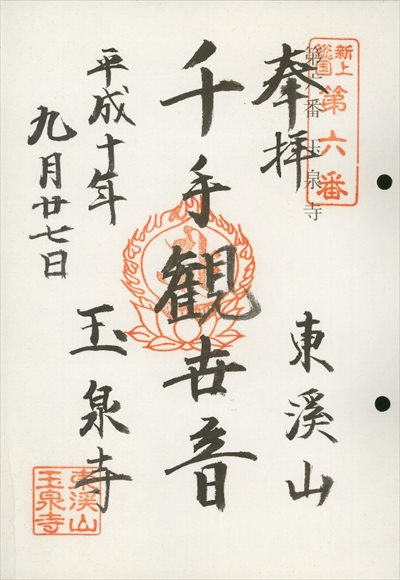 新上
総国
第六番
第六番 玉泉寺
奉拝
東溪山
千手観世音
平成十年
九月廿七日
玉泉寺
東溪山
玉泉寺